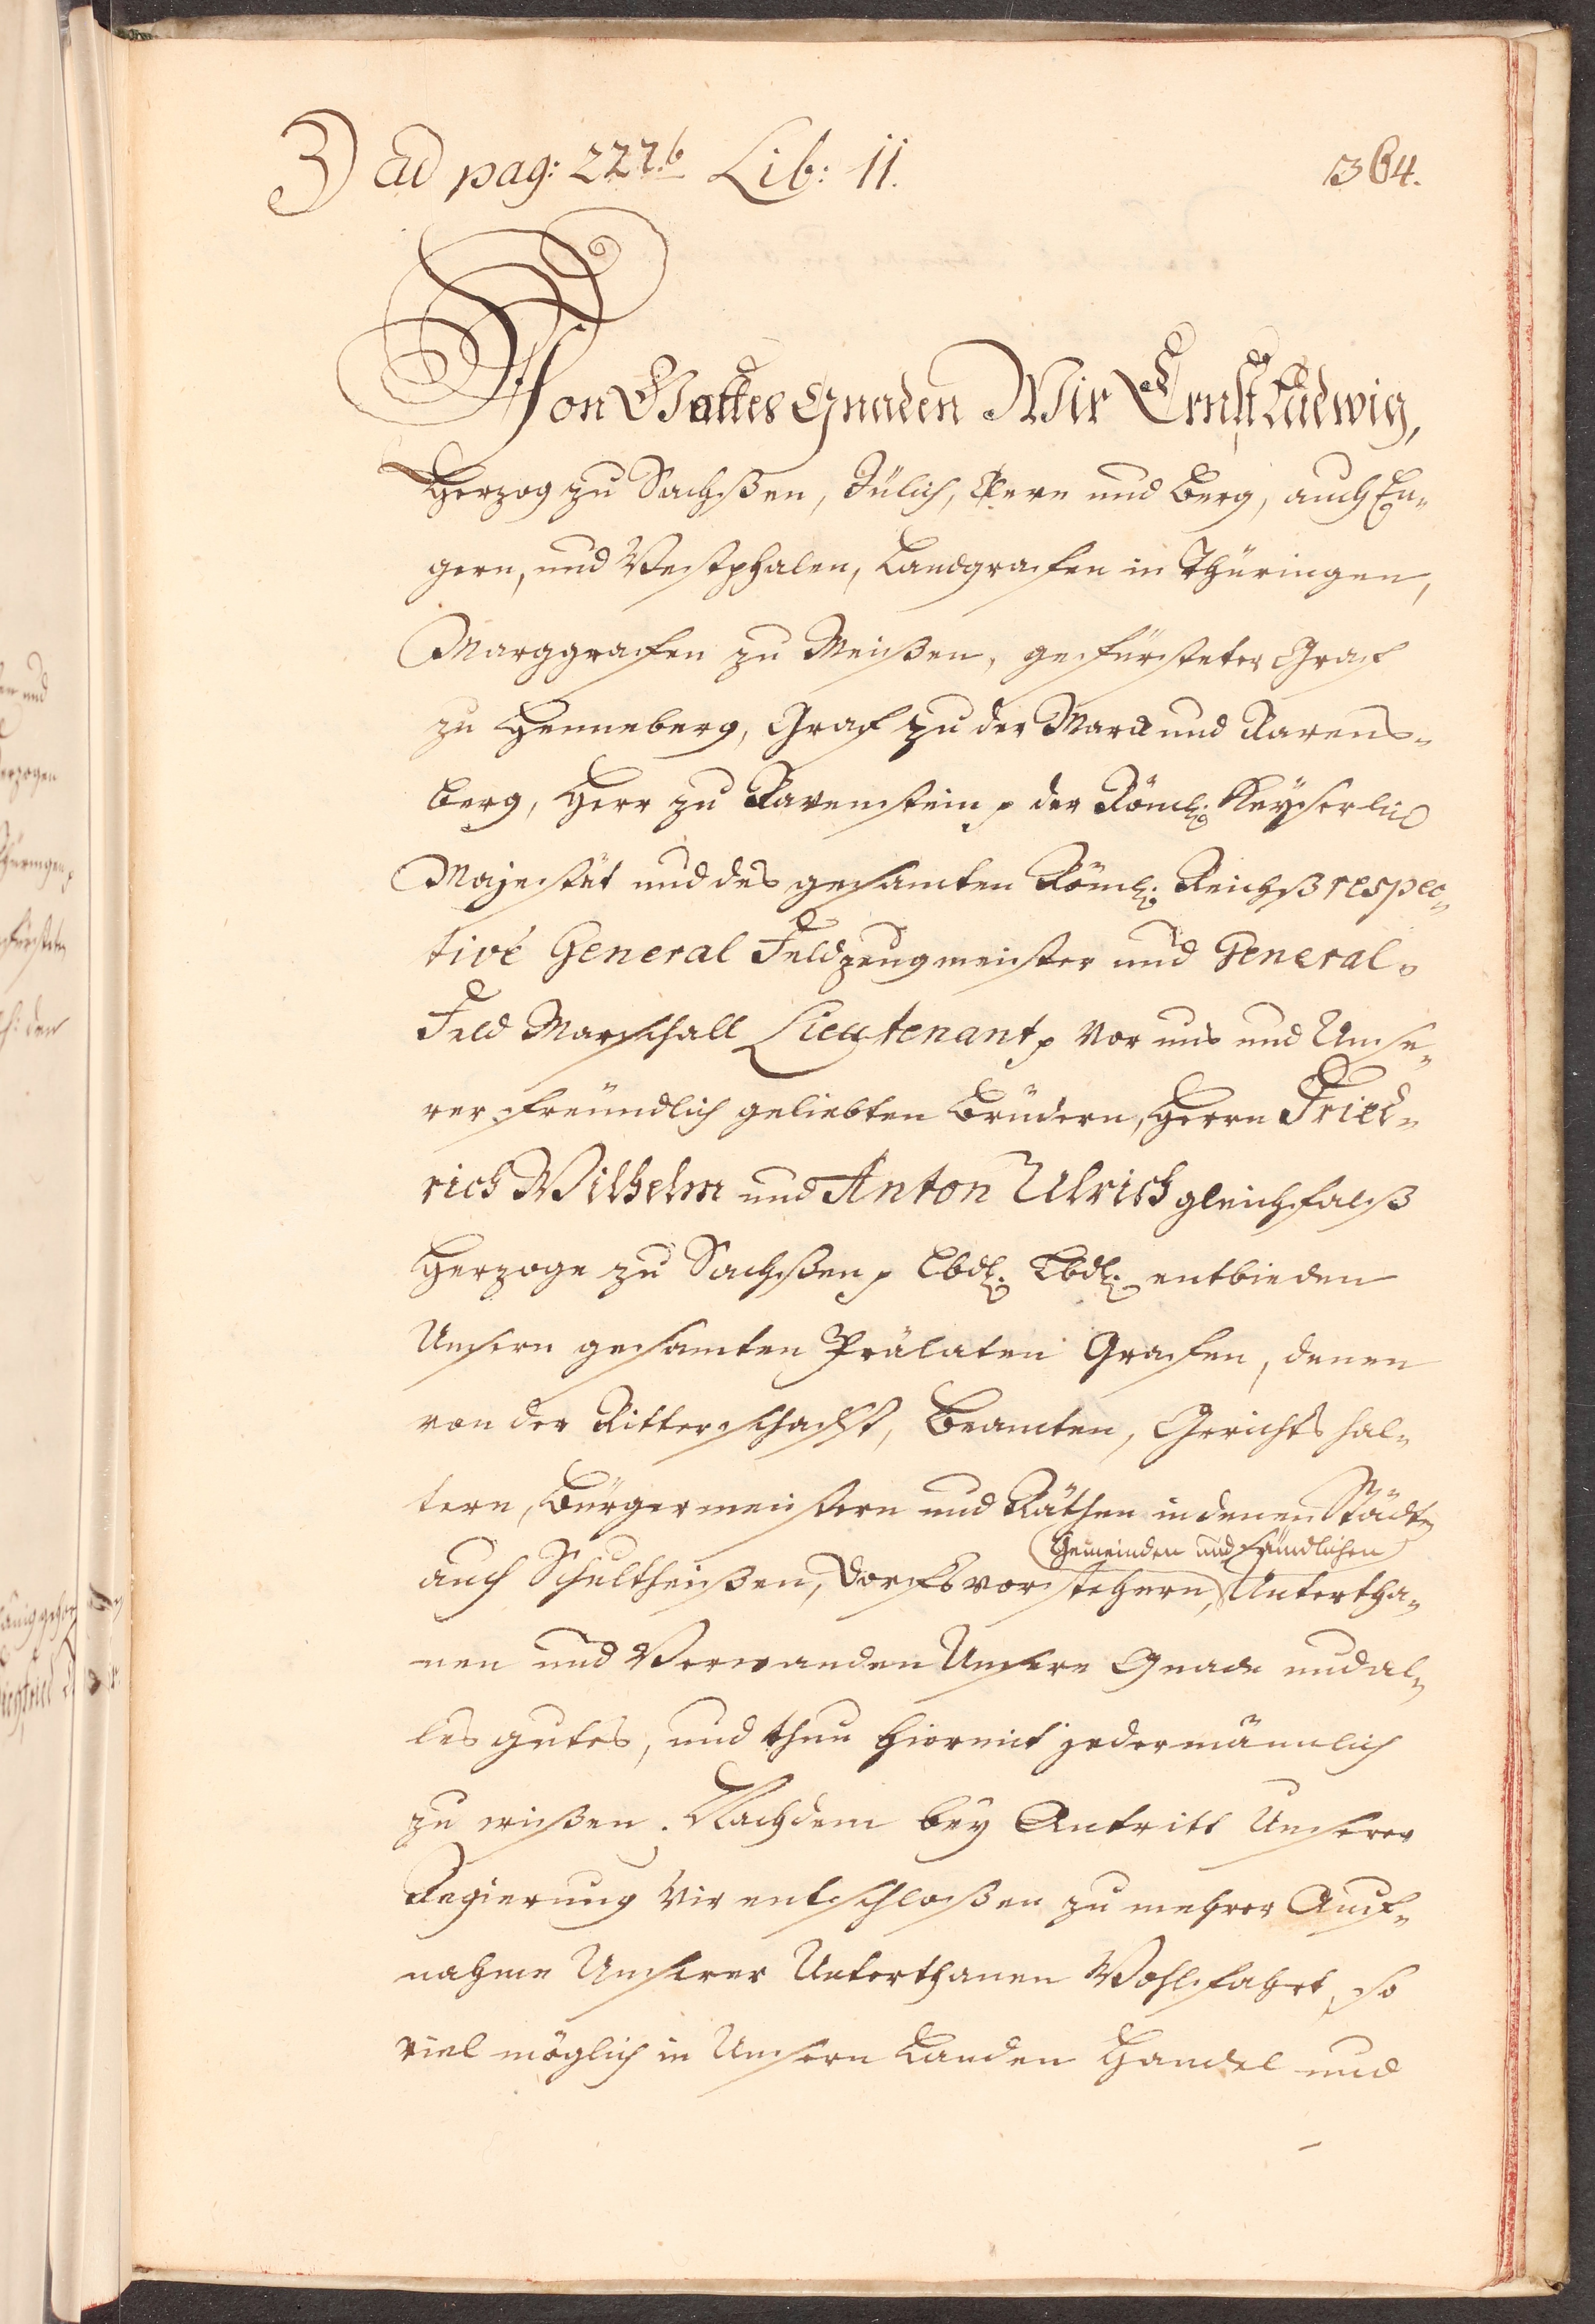 3) ad pag: 227.b Lib: 11.
1364.
Von Gottes Gnaden Wir Ernst Ludwig,
Herzog zu Sachßen, Jülich, Cleve und Berg, auch En-
gern, und Westphalen, Landgrafen in Thüringen,
Marggrafen zu Meißen, gefürsteter Graf
zu Henneberg, Graf zu der Marck und Ravens-
berg, Herr zu Ravenstein p der Röml: Keyserlic
Majestät und des gesamten Röml: Reichß respec-
tivè General Feldzeugmeister und General-
Feld Marschall Lieutenant p vor uns und Unse-
rer freündlich geliebten Brüdern, Herrn Fried-
rich Wilhelm und Anton Ulrich gleichfalß
Herzoge zu Sachßen p Lbdl: Lbdl: entbieden
Unsern gesamten Prälaten Grafen, denen
von der Ritterschafft, Beamten, Gerichts hal-
tern, Bürgermeistern und Räthen in denen Städten
Gemeinden und sämdlichen
auch Schultheißen, Dorfsvorstehern, Untertha-
nen und Verwanden Unsere Gnade und al-
les gutes, und thun hiermit jedermännlich
zu wißen. Nachdem bey Antritt Unserer
Regierung Wir entschloßen zu mehrer Auf-
nahme Unserer Unterthanen Wohlfahrt, so
viel möglich in Unsern Landen Handel und